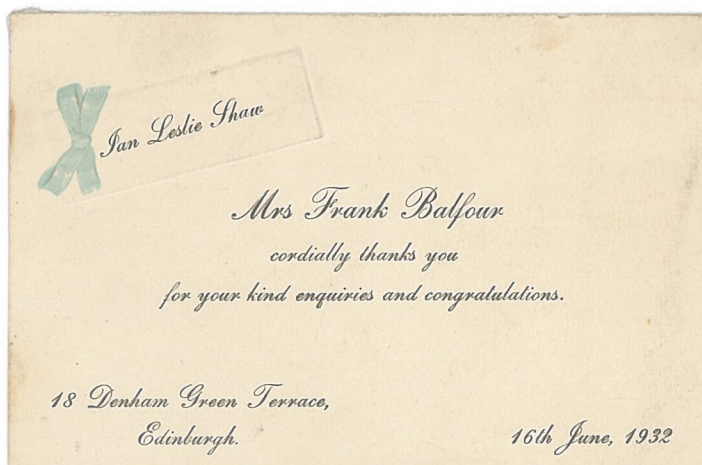 Ian Leslie Shaw
Mrs Frank Balfour
cordially thanks you
for your kind enquiries and congratulations.
18 Denham Green Terrace,
Edinburgh.
16th June, 1932